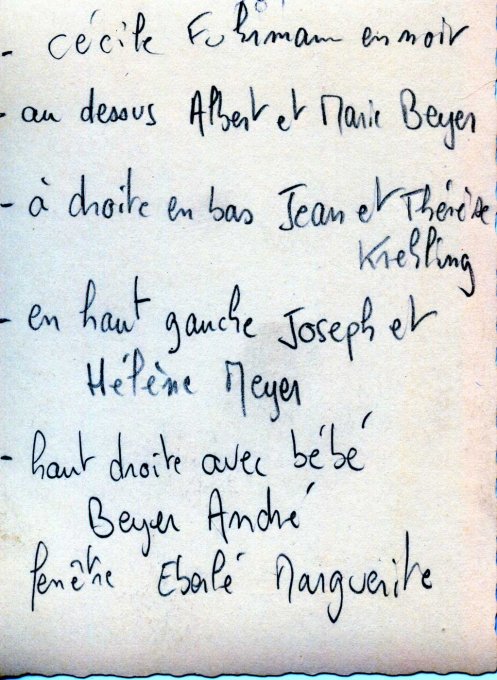 - Cécile Fuhrmann en noir
- au dessus Albert et Marie Beyer
- à droite en bas Jean et Thérèse
Krehling
- en haut gauche Joseph et
Hélène Meyer
- haut droite avec bébé
Beyer André
fenêtre Eberlé Marguerite